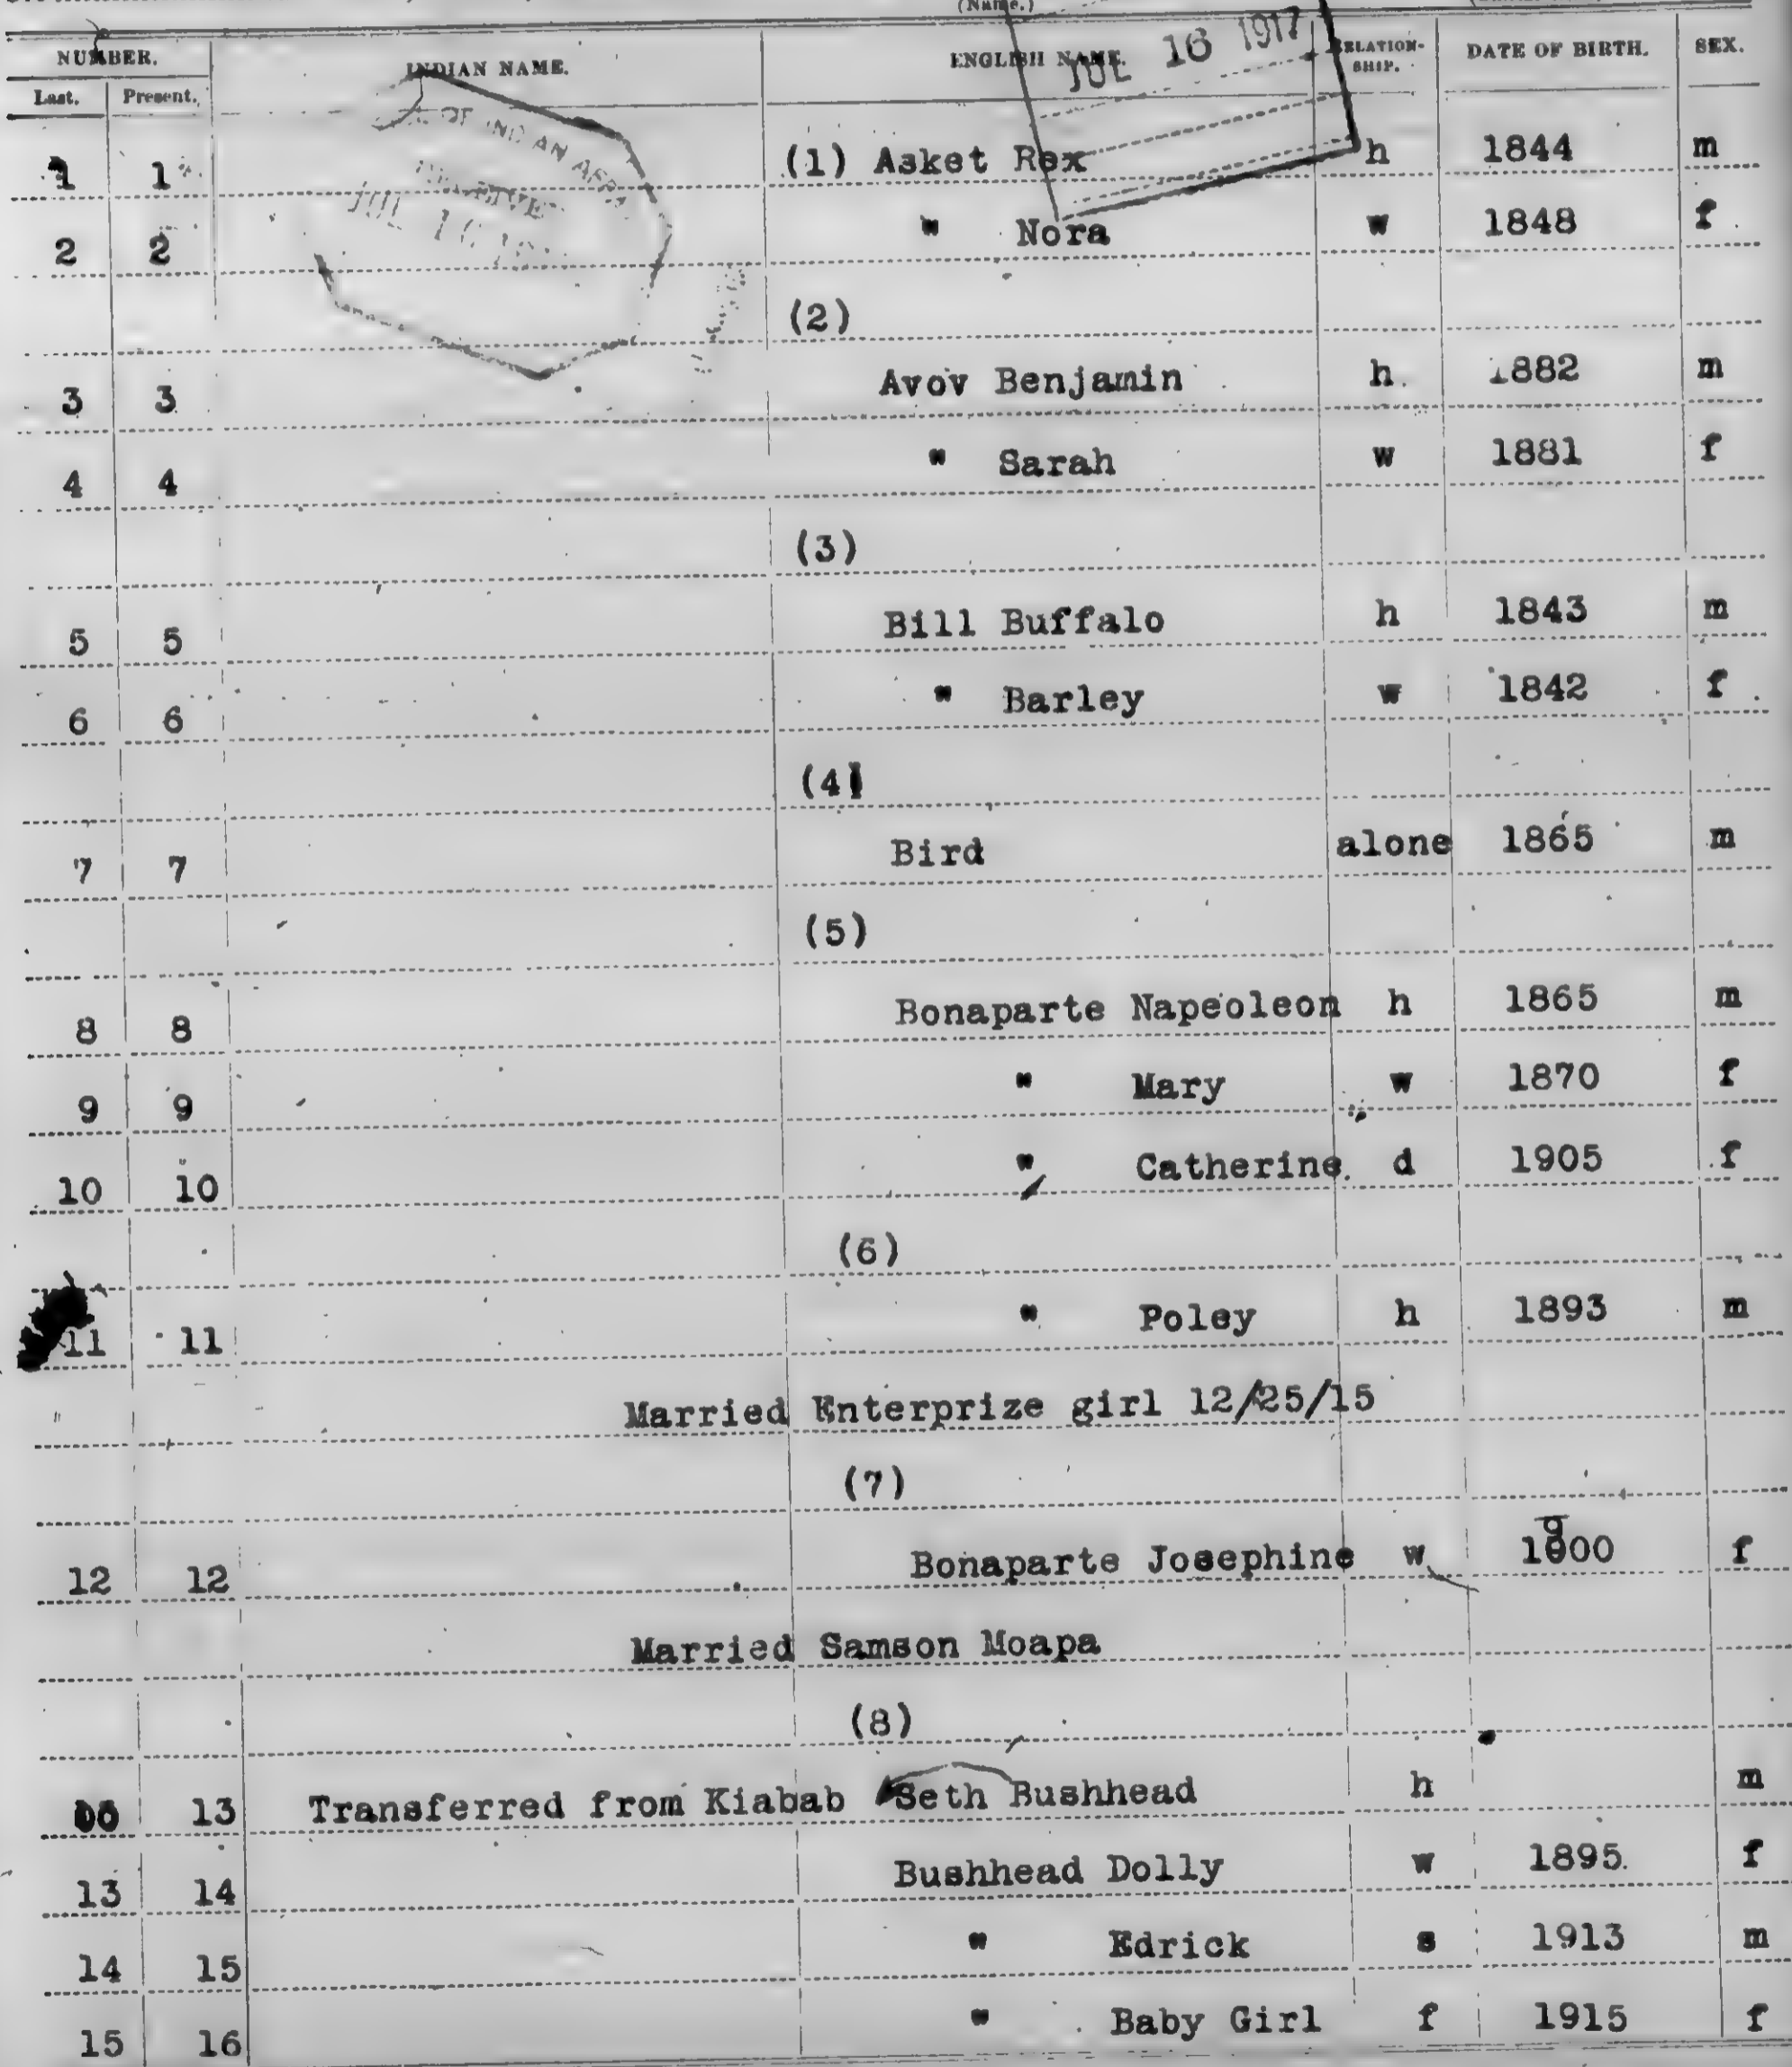 (Name.)
JUL 16 1917
NUMBER. INDIAN NAME. ENGLISH NAME. RELATION-SHIP. DATE OF BIRTH. SEX.
Last. Present.
OF INDIAN AFF
JUL 16
1 1 (1) Asket Rex h 1844 m
2 2 " Nora w 1848 f
(2)
3 3 Avov Benjamin h 1882 m
4 4 " Sarah w 1881 f
(3)
5 5 Bill Buffalo h 1843 m
6 6 " Barley w 1842 f
(4)
7 7 Bird alone 1865 m
(5)
8 8 Bonaparte Napeoleon h 1865 m
9 9 " Mary w 1870 f
10 10 " Catherine. d 1905 f
(6)
11 11 " Poley h 1893 m
Married Enterprize girl 12/25/15
(7)
12 12 Bonaparte Josephine w 1900 f
Married Samson Moapa
(8)
13 Transferred from Kiabab Seth Bushhead h m
13 14 Bushhead Dolly w 1895. f
14 15 " Edrick s 1913 m
15 16 " Baby Girl f 1915 f